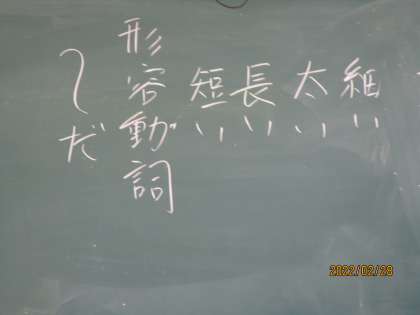 細い
太い
長い
短い
形容動詞
〜だ
2022/02/28